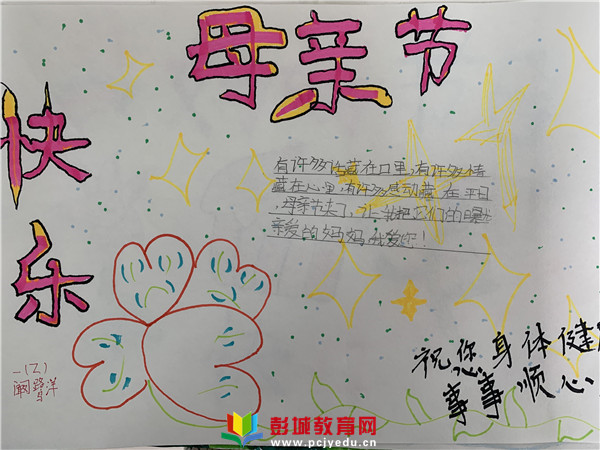 母亲节
快乐
有许多话藏在口里,有许多情
藏在心里,有许多感动藏在平日
,母亲节来了,让我把它们的曝光
亲爱的妈妈我爱你!
祝您身体健
事事顺心
一(2)
阚
洋
彭城教育网
www.pcjyedu.cn